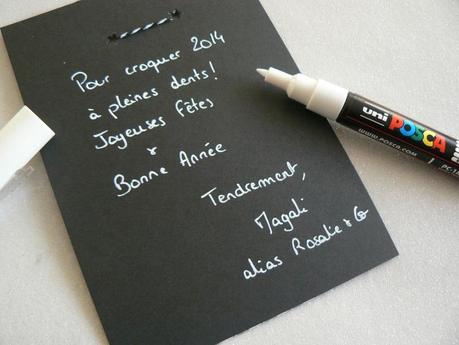 Pour croquer 2014
à pleines dents!
Joyeuses Fêtes
&
Bonne Année
Tendrement,
Magali
alias Rosalie & Co
uni POSCA
WWW.POSCA.COM